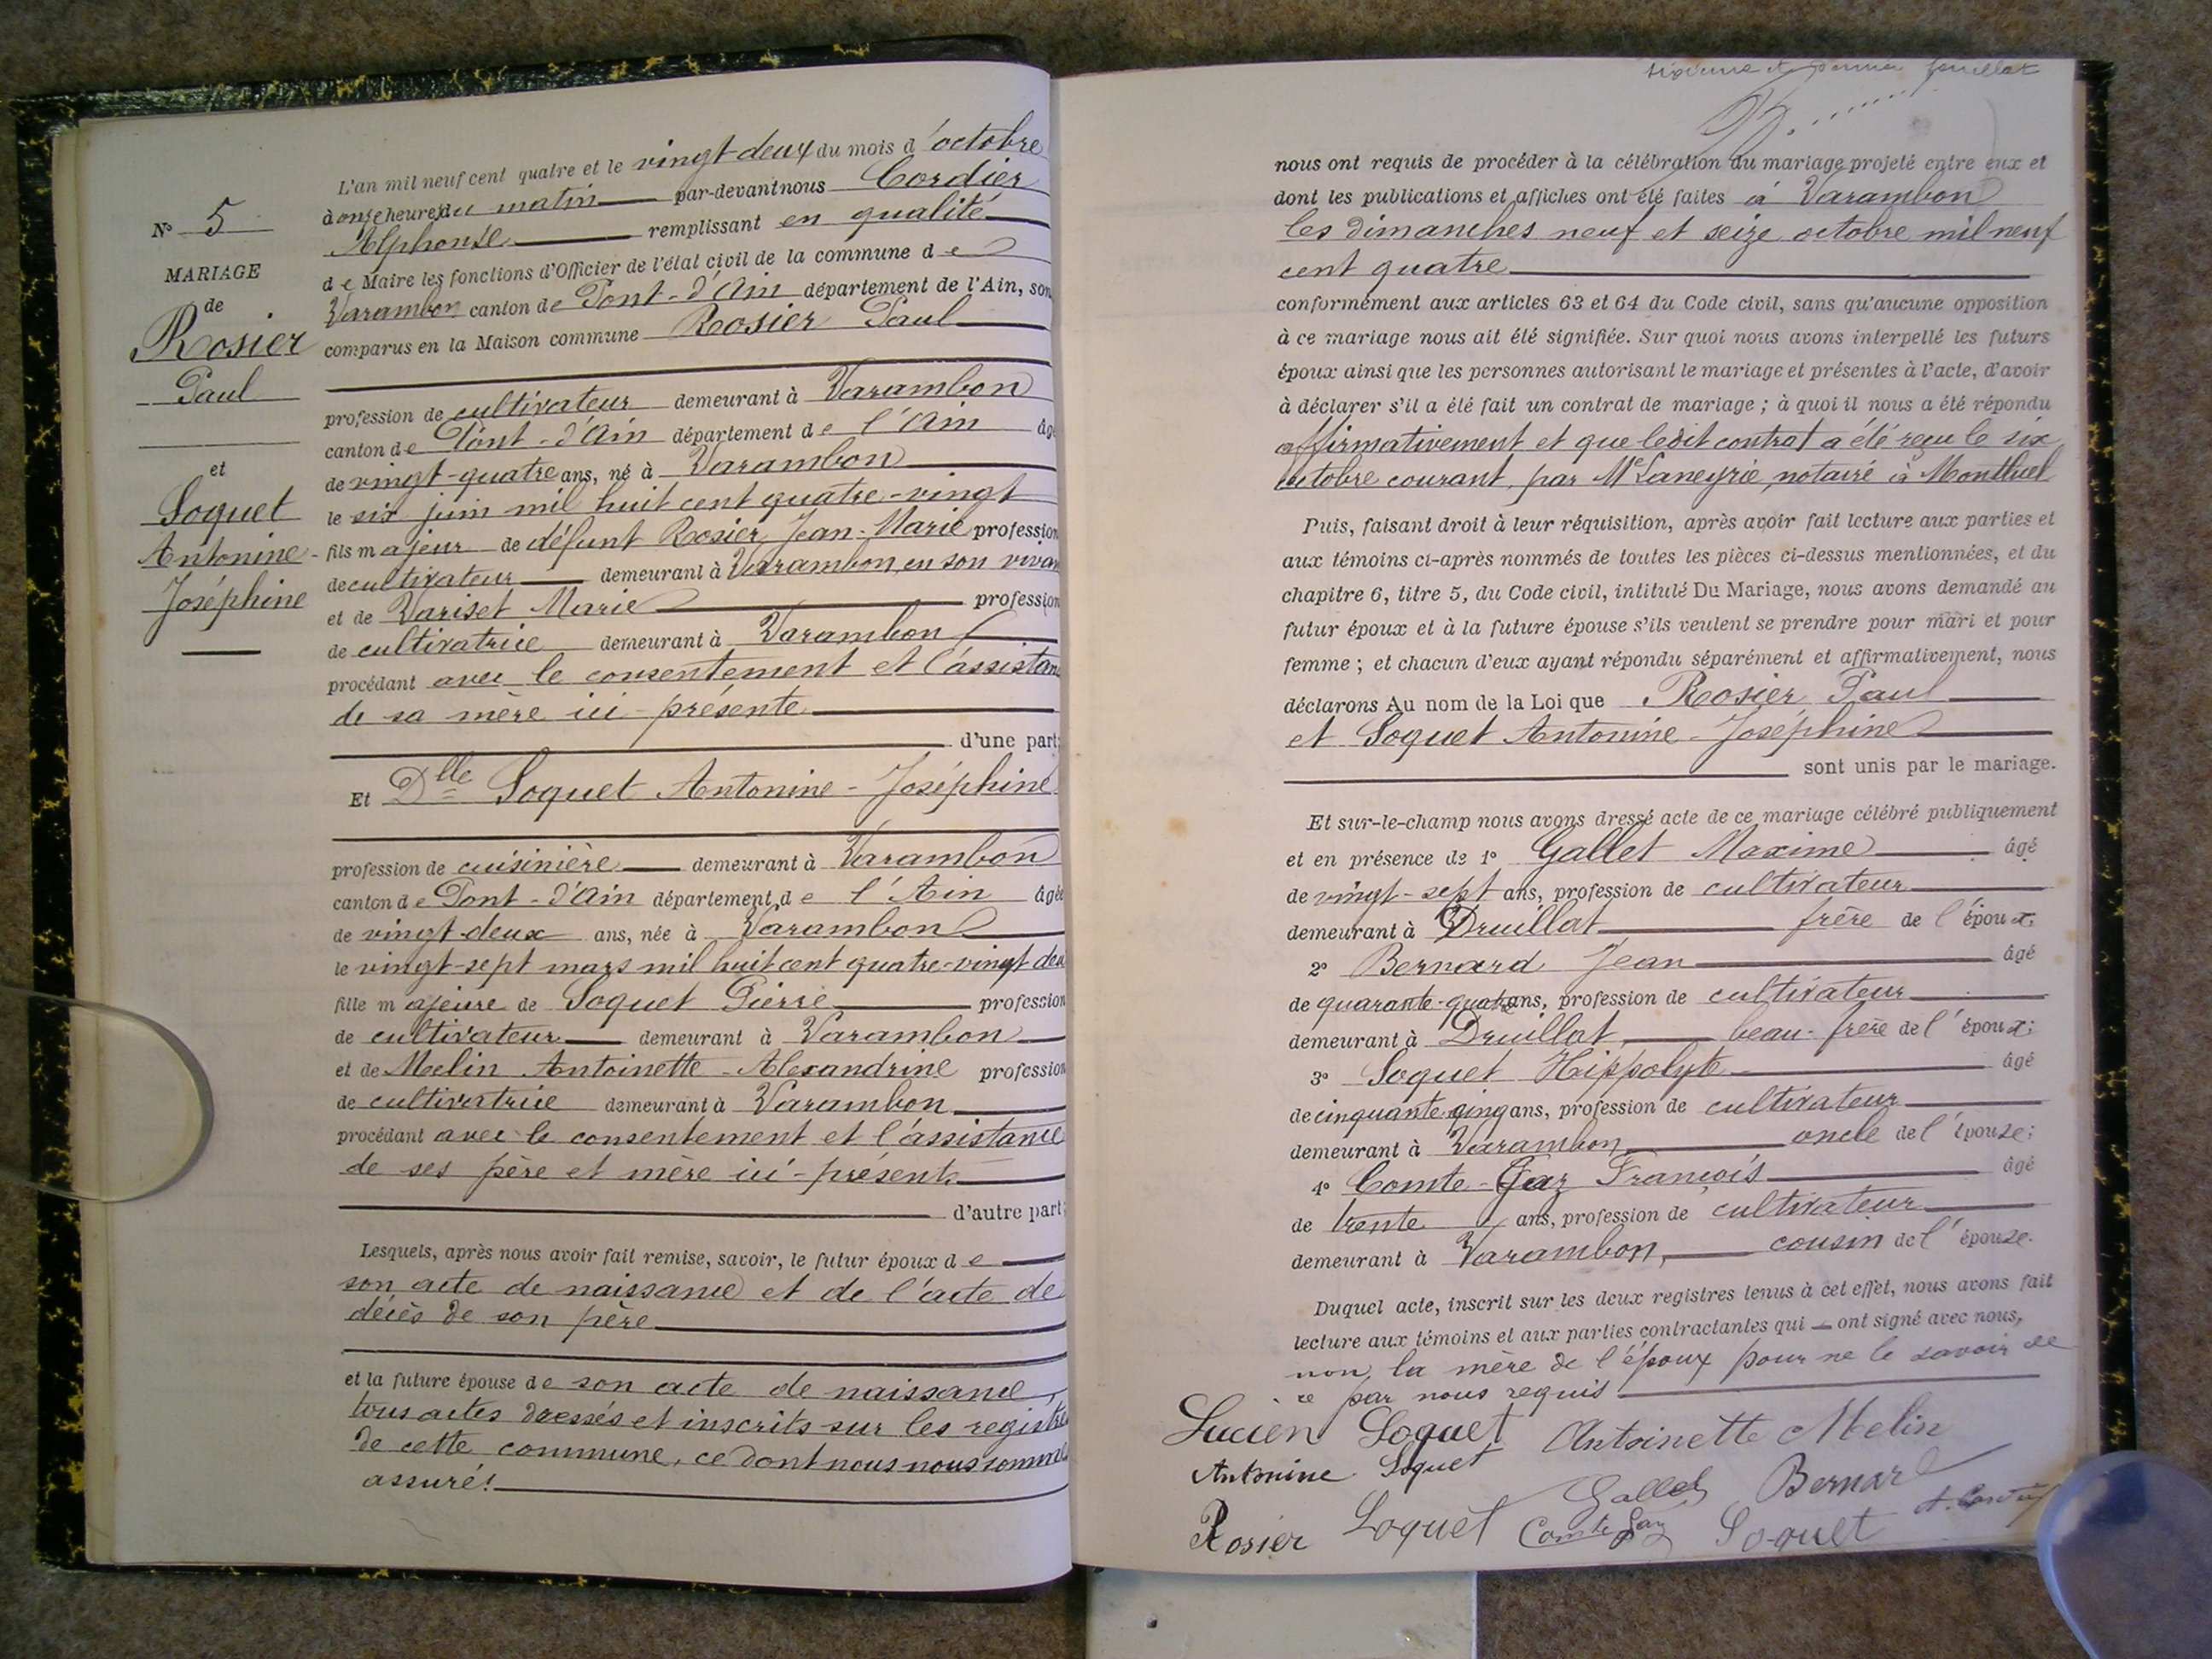 N° 5
MARIAGE
de
Rosier
Paul
et
Soquet
Antonine-
Joséphine
L'an mil neuf cent quatre et le vingt-deux du mois d'octobre
à onze heures du matin par-devant nous Cordier
Alphonse remplissant en qualité
de Maire les fonctions d'Officier de l'état civil de la commune de
Varambon canton de Pont-d'Ain département de l'Ain, son
comparus en la Maison commune Rosier Paul
profession de cultivateur demeurant à Varambon
canton de Pont-d'Ain département de l'Ain âgé
de vingt-quatre ans, né à Varambon
le six juin mil huit cent quatre-vingt
fils majeur de défunt Rosier Jean-Marie profession
de cultivateur demeurant à Varambon, en son vivan
et de Variset Marie profession
de cultivatrice demeurant à Varambon
procédant avec le consentement et l'assistan
de sa mère ici-présente
d'une part;
Et Dlle Soquet Antonine-Joséphine
profession de cuisinière demeurant à Varambon
canton de Pont-d'Ain département de l'Ain âgée
de vingt-deux ans, née à Varambon
le vingt-sept mars mil huit cent quatre-vingt deu
fille majeure de Soquet Pierre profession
de cultivateur demeurant à Varambon
et de Melin Antoinette-Alexandrine profession
de cultivatrice demeurant à Varambon
procédant avec le consentement et l'assistance
de ses père et mère ici-présents
d'autre part;
Lesquels, après nous avoir fait remise, savoir, le futur époux de
son acte de naissance et de l'acte de
décès de son père
et la future épouse de son acte de naissance,
tous actes dressés et inscrits sur les registre
de cette commune, ce dont nous nous somme
assuré!
nous ont requis de procéder à la célébration du mariage projeté entre eux et
dont les publications et affiches ont été faites à Varambon
les dimanches neuf et seize octobre mil neuf
cent quatre
conformément aux articles 63 et 64 du Code civil, sans qu'aucune opposition
à ce mariage nous ait été signifiée. Sur quoi nous avons interpellé les futurs
époux ainsi que les personnes autorisant le mariage et présentes à l'acte, d'avoir
à déclarer s'il a été fait un contrat de mariage ; à quoi il nous a été répondu
affirmativement et que ledit contrat a été reçu le six
octobre courant, par Me Laneyrie, notaire à Montluel
Puis, faisant droit à leur réquisition, après avoir fait lecture aux parties et
aux témoins ci-après nommés de toutes les pièces ci-dessus mentionnées, et du
chapitre 6, titre 5, du Code civil, intitulé Du Mariage, nous avons demandé au
futur époux et à la future épouse s'ils veulent se prendre pour mari et pour
femme ; et chacun d'eux ayant répondu séparément et affirmativement, nous
déclarons Au nom de la Loi que Rosier Paul
et Soquet Antonine-Joséphine
sont unis par le mariage.
Et sur-le-champ nous avons dressé acte de ce mariage célébré publiquement
et en présence de 1° Gallet Maxime âgé
de vingt-sept ans, profession de cultivateur
demeurant à Druillat frère de l'époux;
2° Bernard Jean âgé
de quarante-quatre ans, profession de cultivateur
demeurant à Druillat, beau-frère de l'époux;
3° Soquet Hippolyte âgé
de cinquante-cinq ans, profession de cultivateur
demeurant à Varambon oncle de l'épouse;
4° Comte-Gaz François âgé
de trente ans, profession de cultivateur
demeurant à Varambon, cousin de l'épouse.
Duquel acte, inscrit sur les deux registres tenus à cet effet, nous avons fait
lecture aux témoins et aux parties contractantes qui ont signé avec nous,
non la mère de l'époux pour ne le savoir de
ce par nous requis
Lucien Soquet Antoinette Melin
Antonine Soquet
Gallet Bernard
Rosier Soquet Comte Gaz Soquet A. Cordier